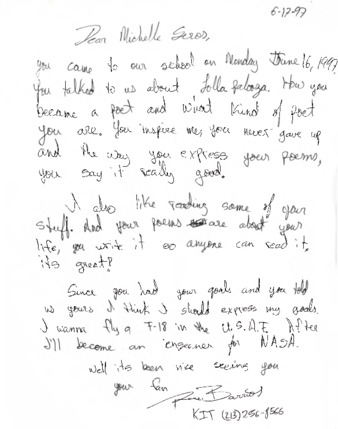 6-17-97
Dear Michelle Seros,
you came to our school on Monday June 16, 1997
You talked to us about Lollapalooza. How you
became a poet and what kind of poet
you are. You inspire me, you never gave up
and the way you express your poems,
you say it really good.
I also like reading some of your
stuff. And your poems are about your
life, you write it so anyone can read it,
its great!
Since you had your goals and you told
us yours I think I should express my goals.
I wanna fly a F-18 in the U.S.A.F. After
I'll become an engeneer for NASA.
Well its been nice seeing you
your fan
Barrios
KIT (213) 256-